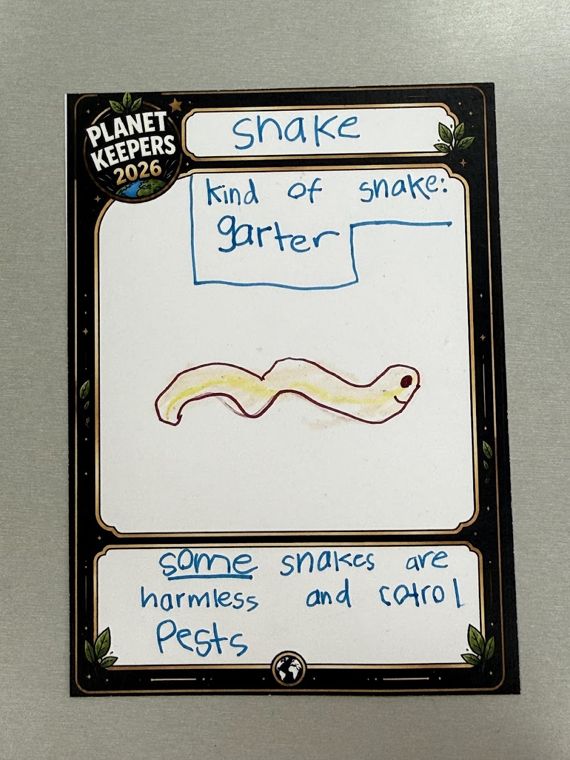 PLANET
KEEPERS
2026
snake
kind of snake:
garter
some snakes are
harmless and cotrol
Pests